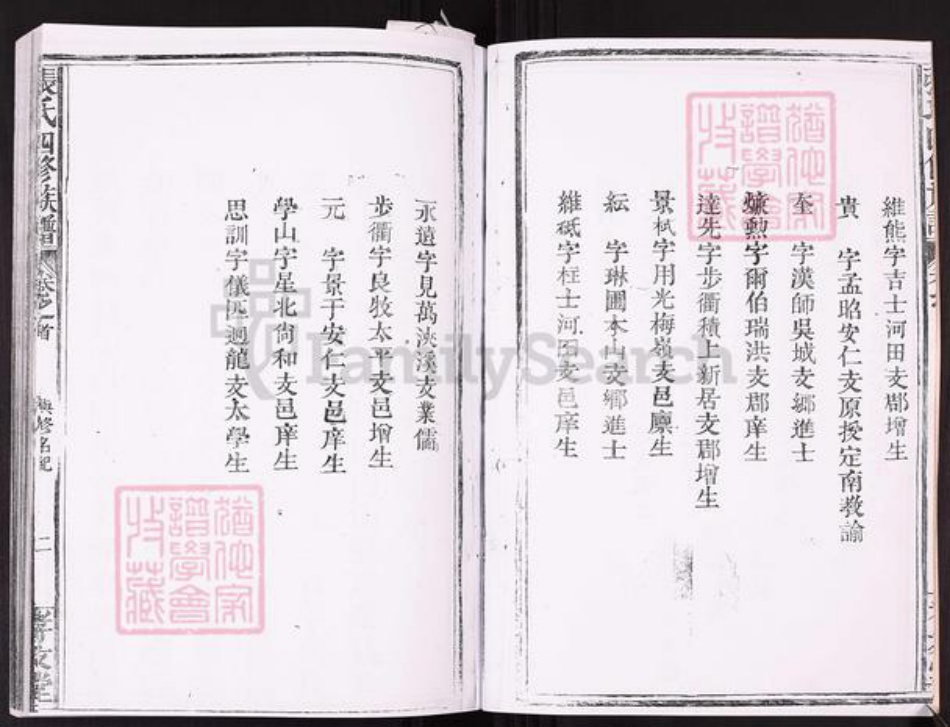 維熊字吉士河田支郡增生
貴 字孟昭安仁支原授定南教諭
奎 字漢師吳城支鄉進士
勲字爾伯瑞洪支郡庠生
達先字步衢積上新居支郡增生
景栻字用光梅嶺支邑廩生
紜 字琳圃本山支鄉進士
維砥字柱士河田支邑庠生
永遠字見萬浹溪支業儒
步衢字良牧太平支邑增生
元 字景于安仁支邑庠生
學山字星北尙和支邑庠生
思訓字儀匹迴龍支太學生
張氏四修族譜
卷之首
與修名紀
二
孝友堂
猶他家譜學會收藏
猶他家譜學會收藏
FamilySearch